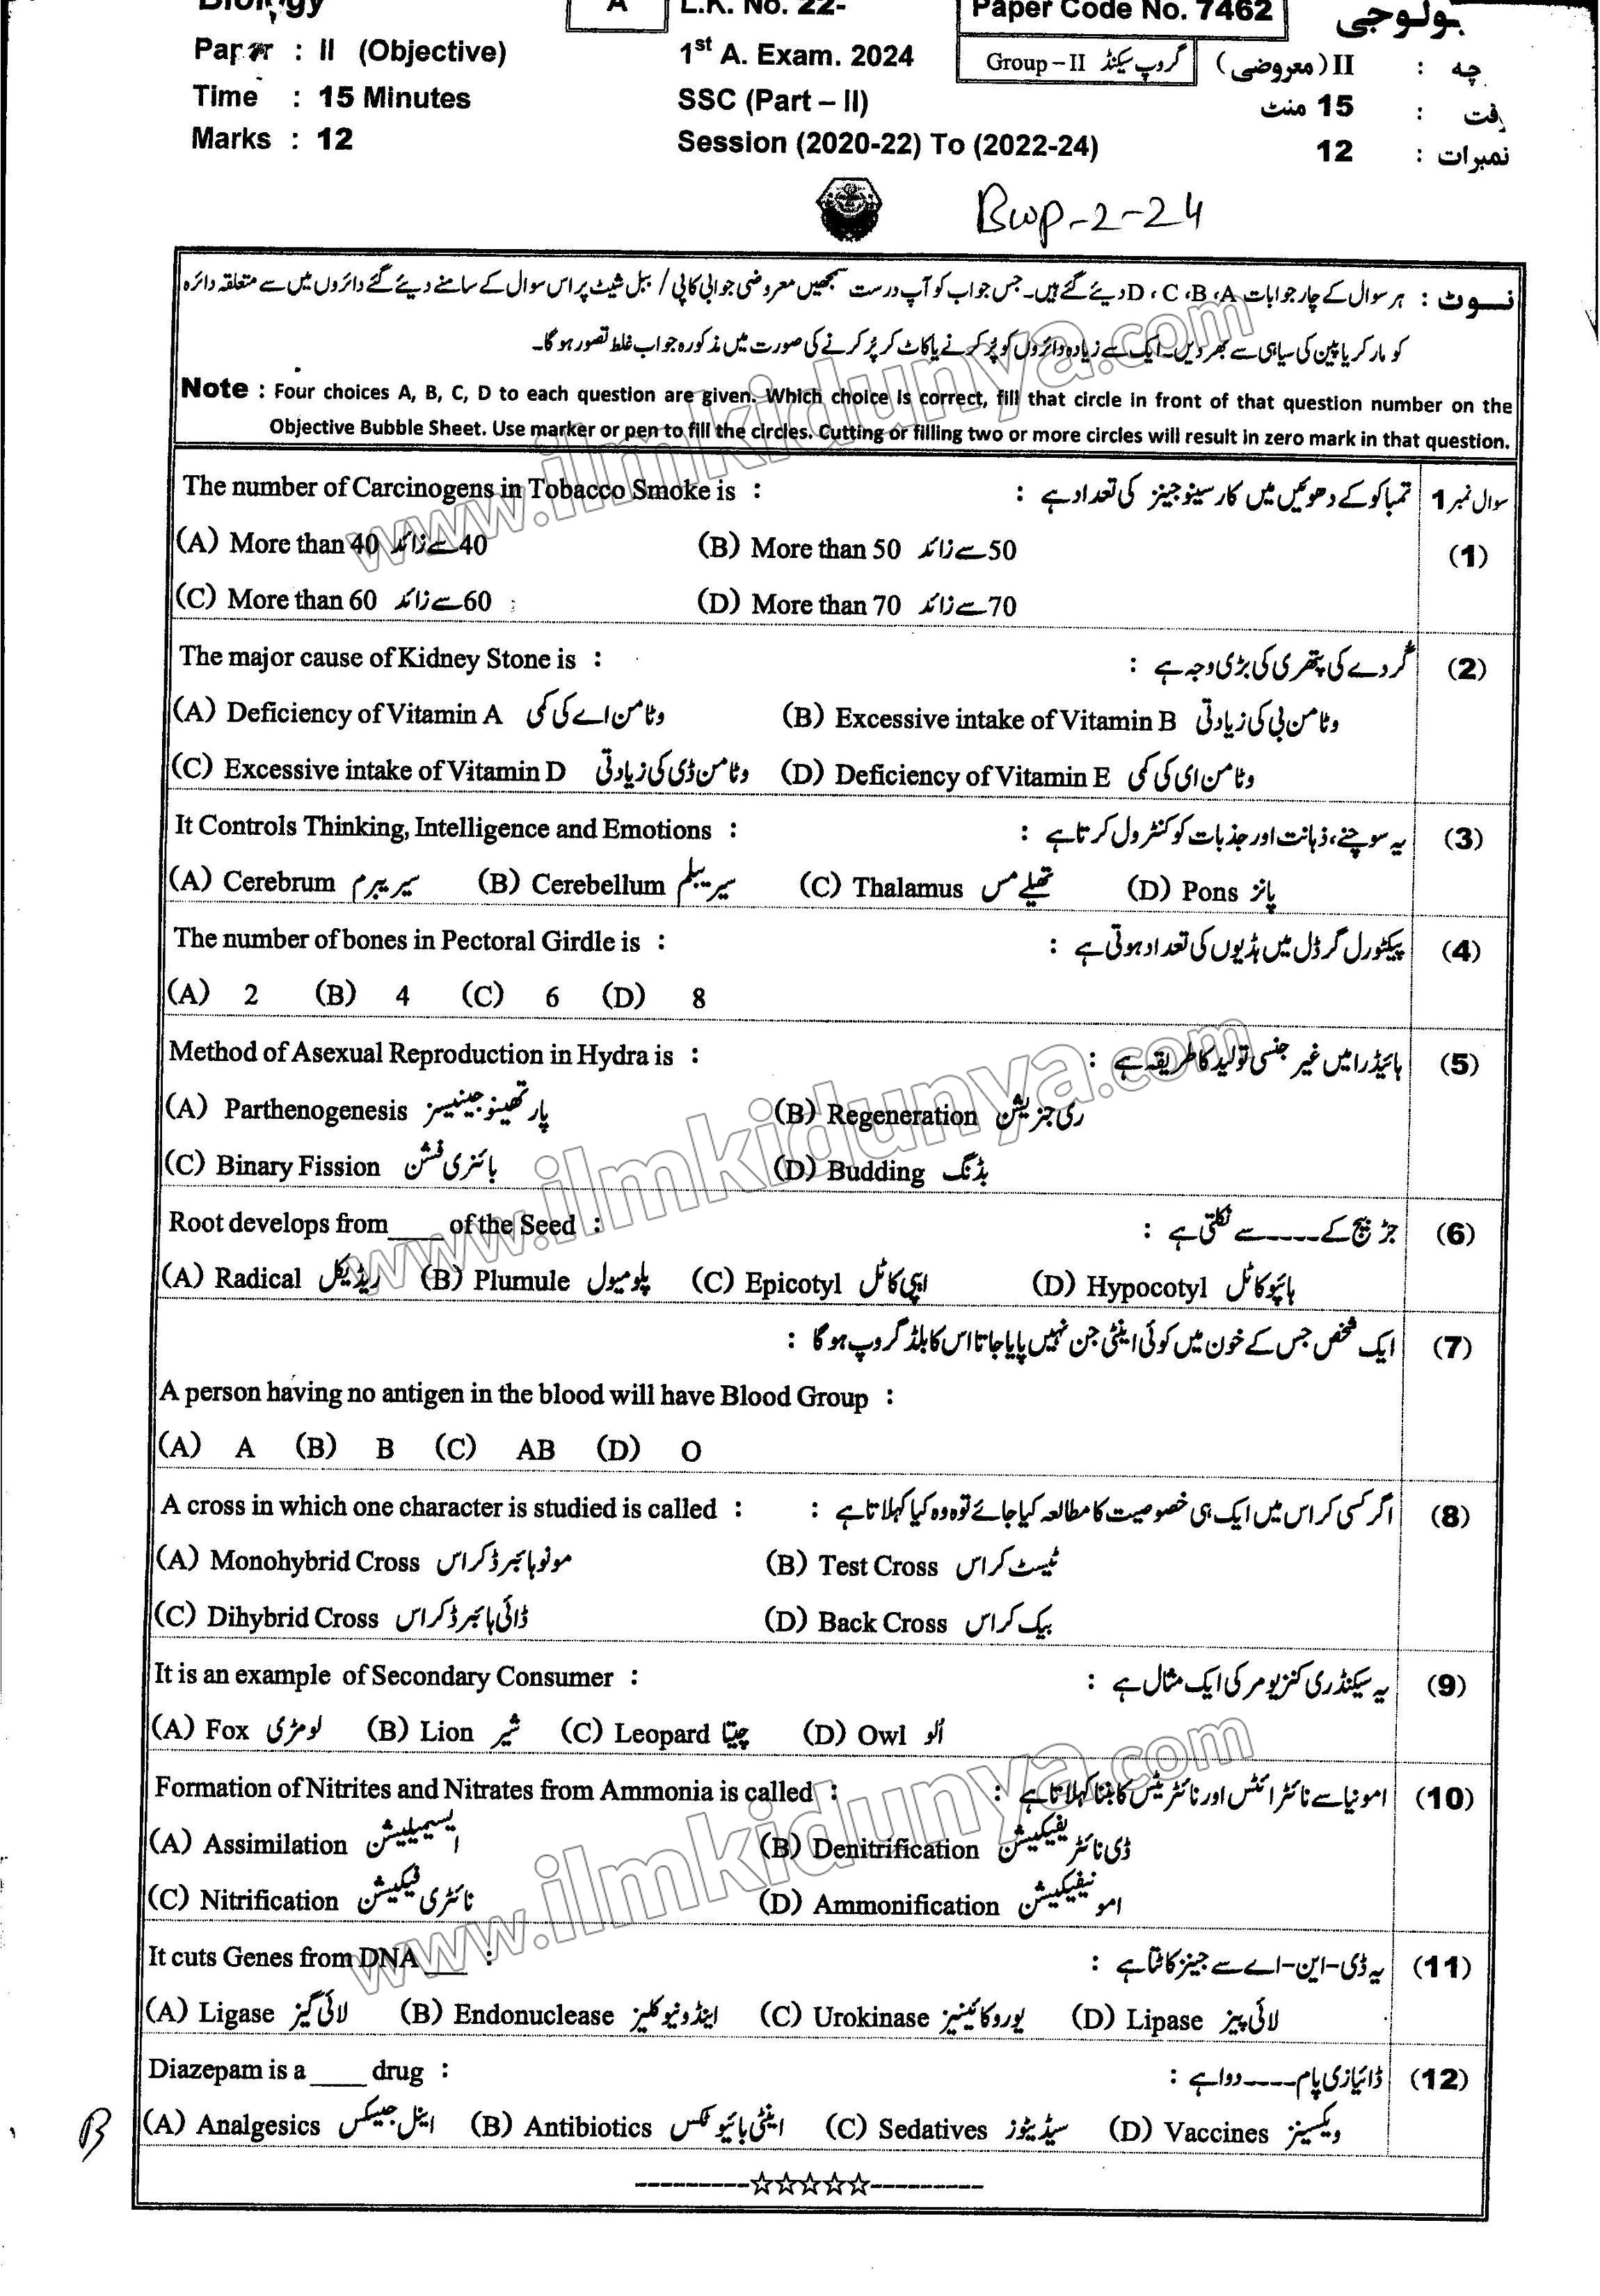 Biology
A
L.K. No. 22-
Paper Code No. 7462
بولوجی
Paper : II (Objective)
1st A. Exam. 2024
Group – II گروپ سیکنڈ
چہ : II (معروضی)
Time : 15 Minutes
SSC (Part – II)
وقت : 15 منٹ
Marks : 12
Session (2020-22) To (2022-24)
نمبرات : 12
Bwp-2-24
نوٹ : ہر سوال کے چار جوابات D ، C ،B ،A دیئے گئے ہیں۔ جس جواب کو آپ درست سمجھیں معروضی جوابی کاپی / ببل شیٹ پر اس سوال کے سامنے دیئے گئے دائروں میں سے متعلقہ دائرہ
کو مارکر یا پین کی سیاہی سے بھر دیں۔ ایک سے زیادہ دائروں کو پُر کرنے یا کاٹ کر پُر کرنے کی صورت میں مذکورہ جواب غلط تصور ہو گا۔
Note : Four choices A, B, C, D to each question are given. Which choice is correct, fill that circle in front of that question number on the
Objective Bubble Sheet. Use marker or pen to fill the circles. Cutting or filling two or more circles will result in zero mark in that question.
The number of Carcinogens in Tobacco Smoke is : تمباکو کے دھوئیں میں کارسینوجینز کی تعداد ہے : سوال نمبر 1
(1)
(A) More than 40 40 سے زائد (B) More than 50 50 سے زائد
(C) More than 60 60 سے زائد (D) More than 70 70 سے زائد
The major cause of Kidney Stone is : گردے کی پتھری کی بڑی وجہ ہے : (2)
(A) Deficiency of Vitamin A وٹامن اے کی کمی (B) Excessive intake of Vitamin B وٹامن بی کی زیادتی
(C) Excessive intake of Vitamin D وٹامن ڈی کی زیادتی (D) Deficiency of Vitamin E وٹامن ای کی کمی
It Controls Thinking, Intelligence and Emotions : یہ سوچنے، ذہانت اور جذبات کو کنٹرول کرتا ہے : (3)
(A) Cerebrum سیریبرم (B) Cerebellum سیریبلم (C) Thalamus تھیلے مس (D) Pons پانز
The number of bones in Pectoral Girdle is : پیکٹورل گرڈل میں ہڈیوں کی تعداد ہوتی ہے : (4)
(A) 2 (B) 4 (C) 6 (D) 8
Method of Asexual Reproduction in Hydra is : ہائیڈرا میں غیر جنسی تولید کا طریقہ ہے : (5)
(A) Parthenogenesis پارتھینوجینیسز (B) Regeneration ری جنریشن
(C) Binary Fission بائنری فشن (D) Budding بڈنگ
Root develops from____ of the Seed : جڑ بیج کے ---- سے نکلتی ہے : (6)
(A) Radical ریڈیکل (B) Plumule پلومیول (C) Epicotyl ایپی کاٹل (D) Hypocotyl ہائپوکاٹل
ایک شخص جس کے خون میں کوئی اینٹی جن نہیں پایا جاتا اس کا بلڈ گروپ ہو گا : (7)
A person having no antigen in the blood will have Blood Group :
(A) A (B) B (C) AB (D) O
A cross in which one character is studied is called : اگر کسی کراس میں ایک ہی خصوصیت کا مطالعہ کیا جائے تو وہ کیا کہلاتا ہے : (8)
(A) Monohybrid Cross مونوہائبرڈ کراس (B) Test Cross ٹیسٹ کراس
(C) Dihybrid Cross ڈائی ہائبرڈ کراس (D) Back Cross بیک کراس
It is an example of Secondary Consumer : یہ سیکنڈری کنزیومر کی ایک مثال ہے : (9)
(A) Fox لومڑی (B) Lion شیر (C) Leopard چیتا (D) Owl اُلو
Formation of Nitrites and Nitrates from Ammonia is called : امونیا سے نائٹرائٹس اور نائٹریٹس کا بننا کہلاتا ہے : (10)
(A) Assimilation ایسیمیلیشن (B) Denitrification ڈی نائٹریفیکیشن
(C) Nitrification نائٹری فیکیشن (D) Ammonification امونیفیکیشن
It cuts Genes from DNA ___ : یہ ڈی-این-اے سے جینز کاٹتا ہے : (11)
(A) Ligase لائی گیز (B) Endonuclease اینڈونیوکلیز (C) Urokinase یوروکائینیز (D) Lipase لائی پیز
Diazepam is a ____ drug : ڈائیازی پام ---- دوا ہے : (12)
(A) Analgesics اینل جیسکس (B) Antibiotics اینٹی بائیوٹکس (C) Sedatives سیڈیٹیوز (D) Vaccines ویکسینز
B
---------☆☆☆☆☆---------
www.ilmkidunya.com
www.ilmkidunya.com
www.ilmkidunya.com